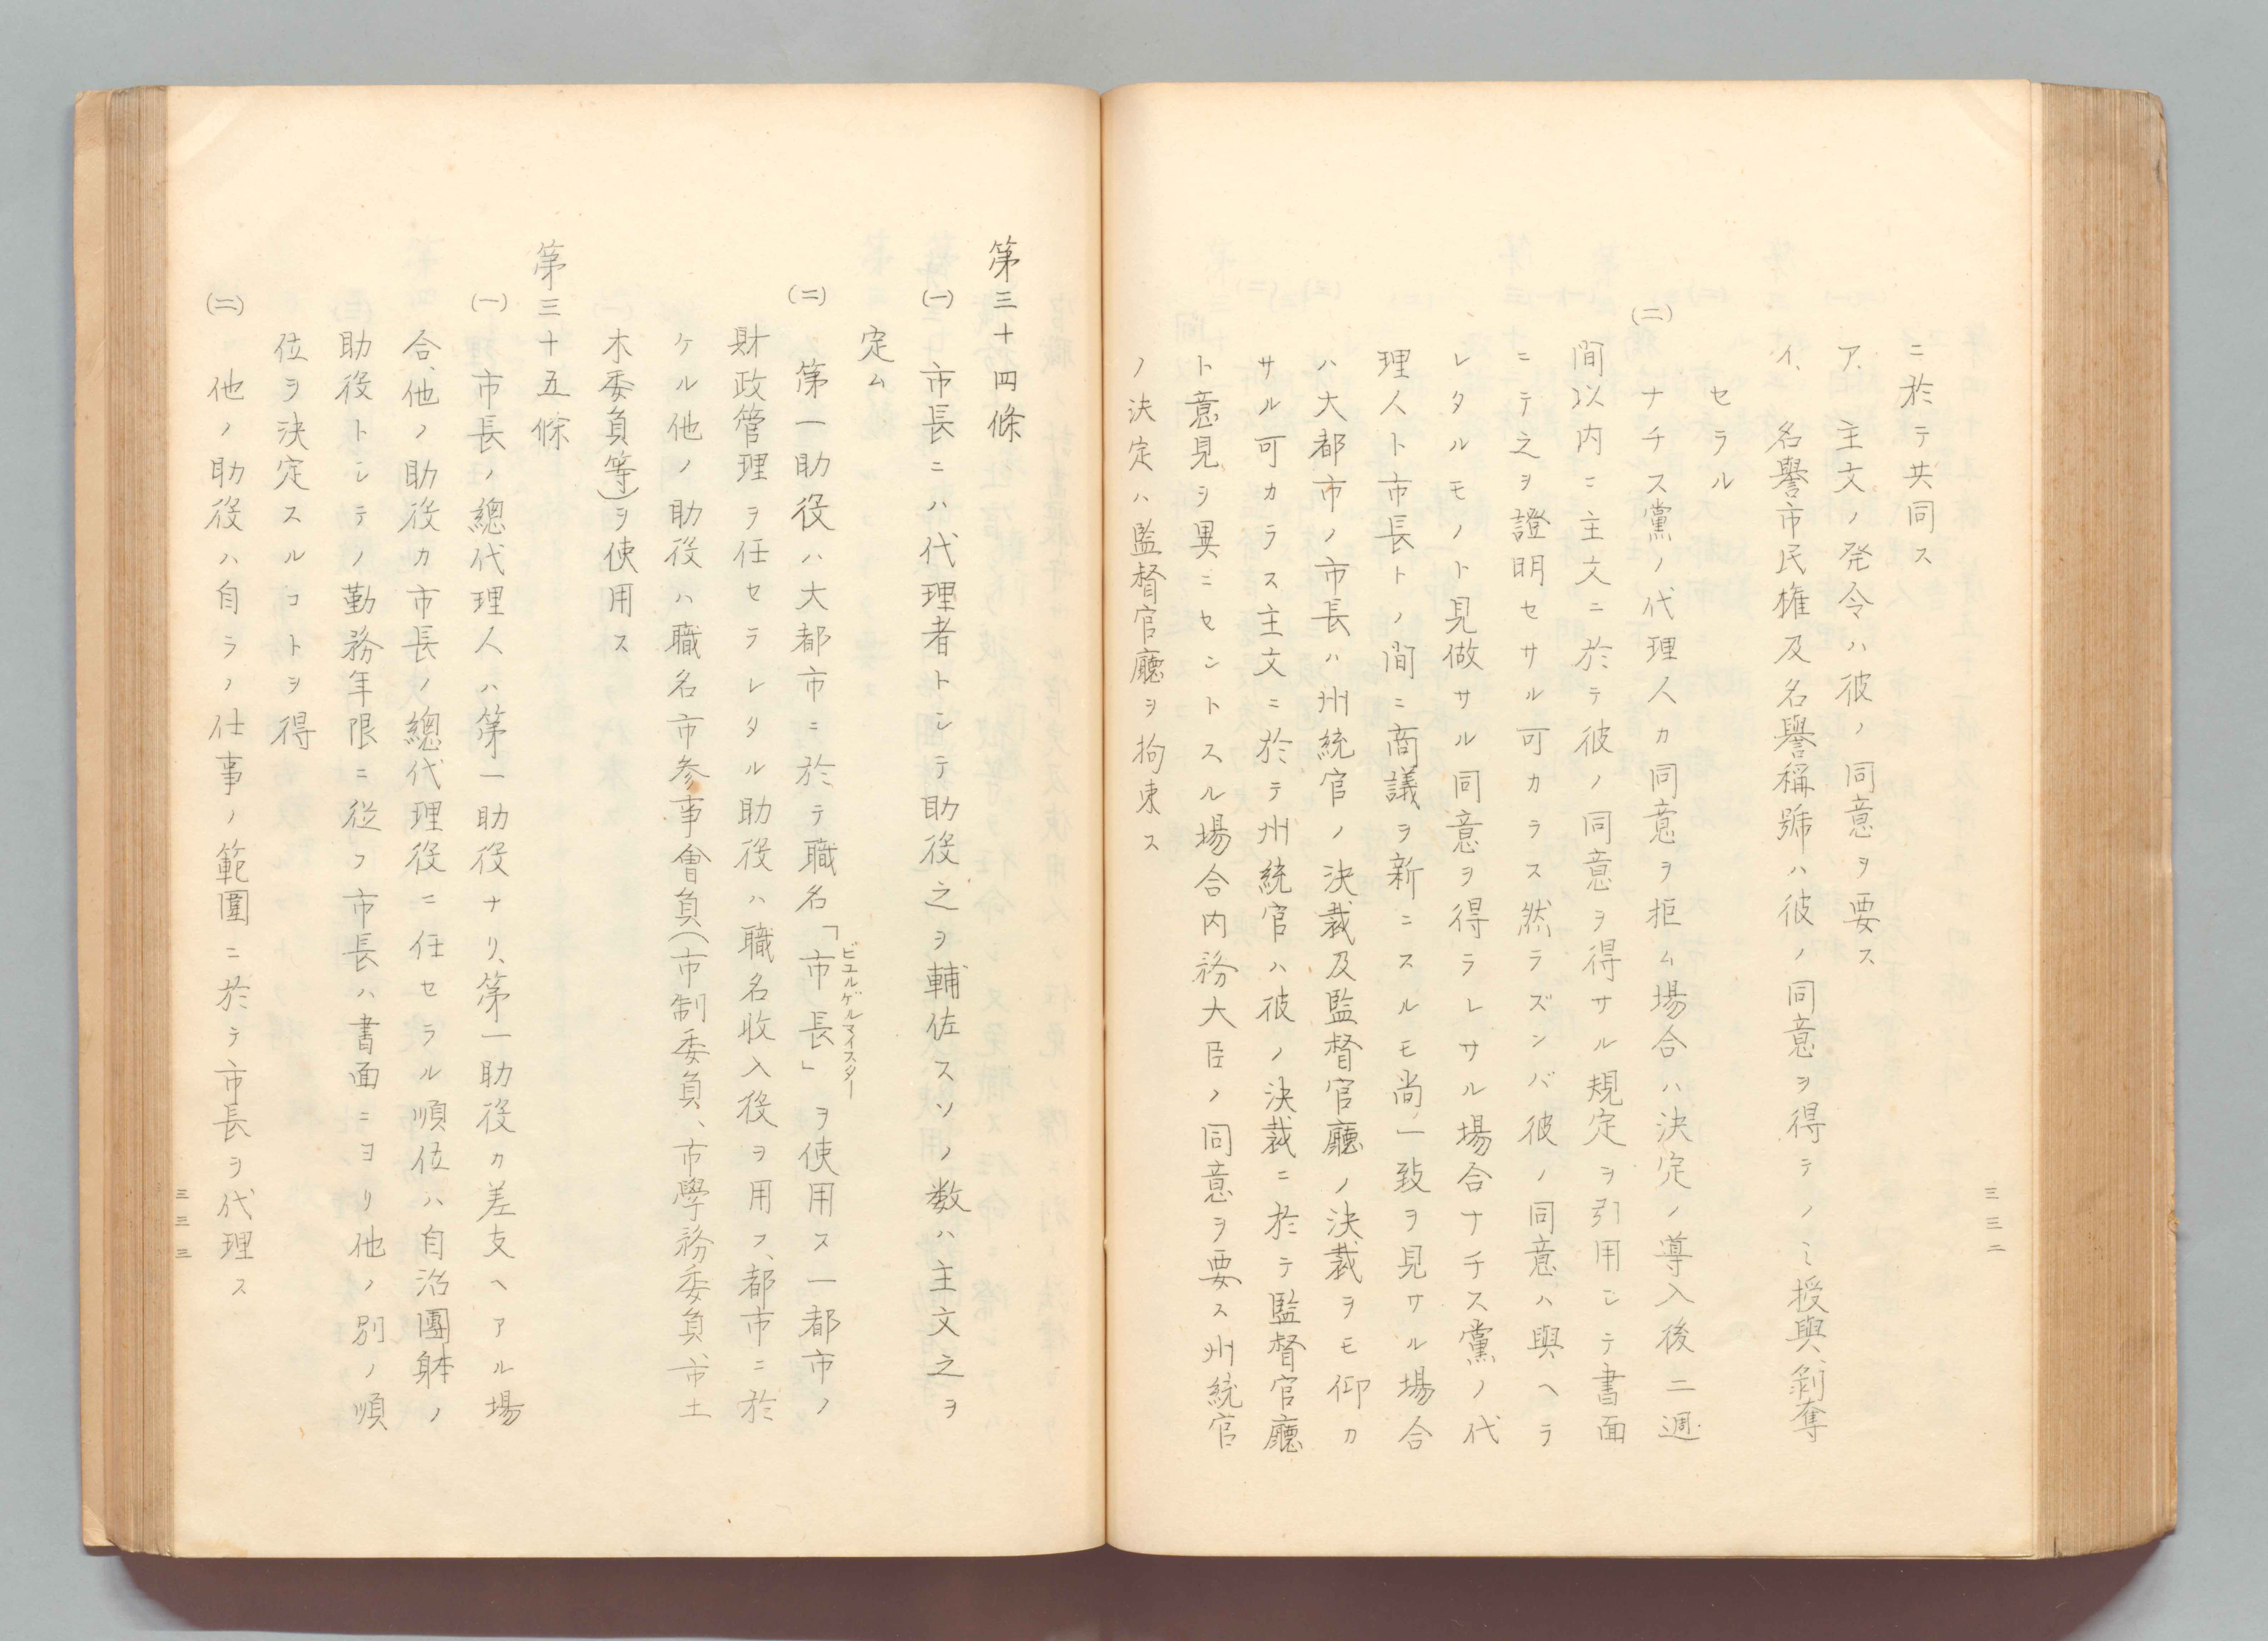 ニ於テ共同ス
ア、主文ノ発令ハ彼ノ同意ヲ要ス
イ、名譽市民権及名譽稱號ハ彼ノ同意ヲ得テノミ授與、剝奪
セラル
(二)ナチス黨ノ代理人カ同意ヲ拒ム場合ハ決定ノ導入後二週
間以内ニ主文ニ於テ彼ノ同意ヲ得サル規定ヲ引用シテ書面
ニテ之ヲ證明セサル可カラス然ラズンバ彼ノ同意ハ與ヘラ
レタルモノト見做サル同意ヲ得ラレサル場合ナチス黨ノ代
理人ト市長トノ間ニ商議ヲ新ニスルモ尚一致ヲ見サル場合
ハ大都市ノ市長ハ州統官ノ決裁及監督官廳ノ決裁ヲモ仰カ
サル可カラス主文ニ於テ州統官ハ彼ノ決裁ニ於テ監督官廳
ト意見ヲ異ニセントスル場合内務大臣ノ同意ヲ要ス州統官
ノ決定ハ監督官廳ヲ拘束ス
三三二
第三十四條
(一)市長ニハ代理者トシテ助役之ヲ輔佐スソノ数ハ主文之ヲ
定ム
(二)第一助役ハ大都市ニ於テ職名「市長」ヲ使用ス一都市ノ
ビュルゲルマイスター
財政管理ヲ任セラレタル助役ハ職名收入役ヲ用ス、都市ニ於
ケル他ノ助役ハ職名市参事會負(市制委負、市學務委負、市土
木委負等)ヲ使用ス
第三十五條
(一)市長ノ總代理人ハ第一助役ナリ、第一助役カ差支ヘアル場
合、他ノ助役カ市長ノ總代理役ニ任セラル順位ハ自治團躰ノ
助役トシテノ勤務年限ニ從フ市長ハ書面ニヨリ他ノ別ノ順
位ヲ決定スルコトヲ得
(二)他ノ助役ハ自ラノ仕事ノ範圍ニ於テ市長ヲ代理ス
三三三